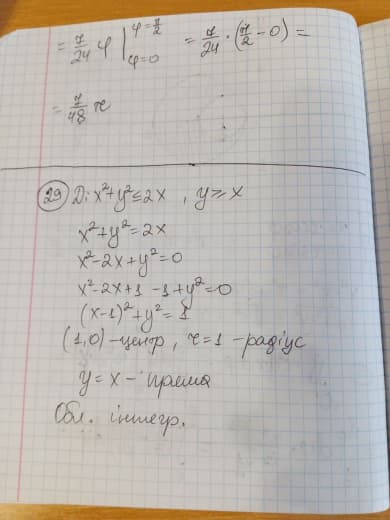 = 7/24 φ |φ=π/2 φ=0 = 7/24 · (π/2 - 0) =
= 7/48 π
29 D: x²+y² ≤ 2x , y ≥ x
x²+y² = 2x
x²-2x+y² = 0
x²-2x+1 -1+y² = 0
(x-1)²+y² = 1
(1,0) - центр , r=1 - радіус
y = x - пряма
Обл. інтегр.